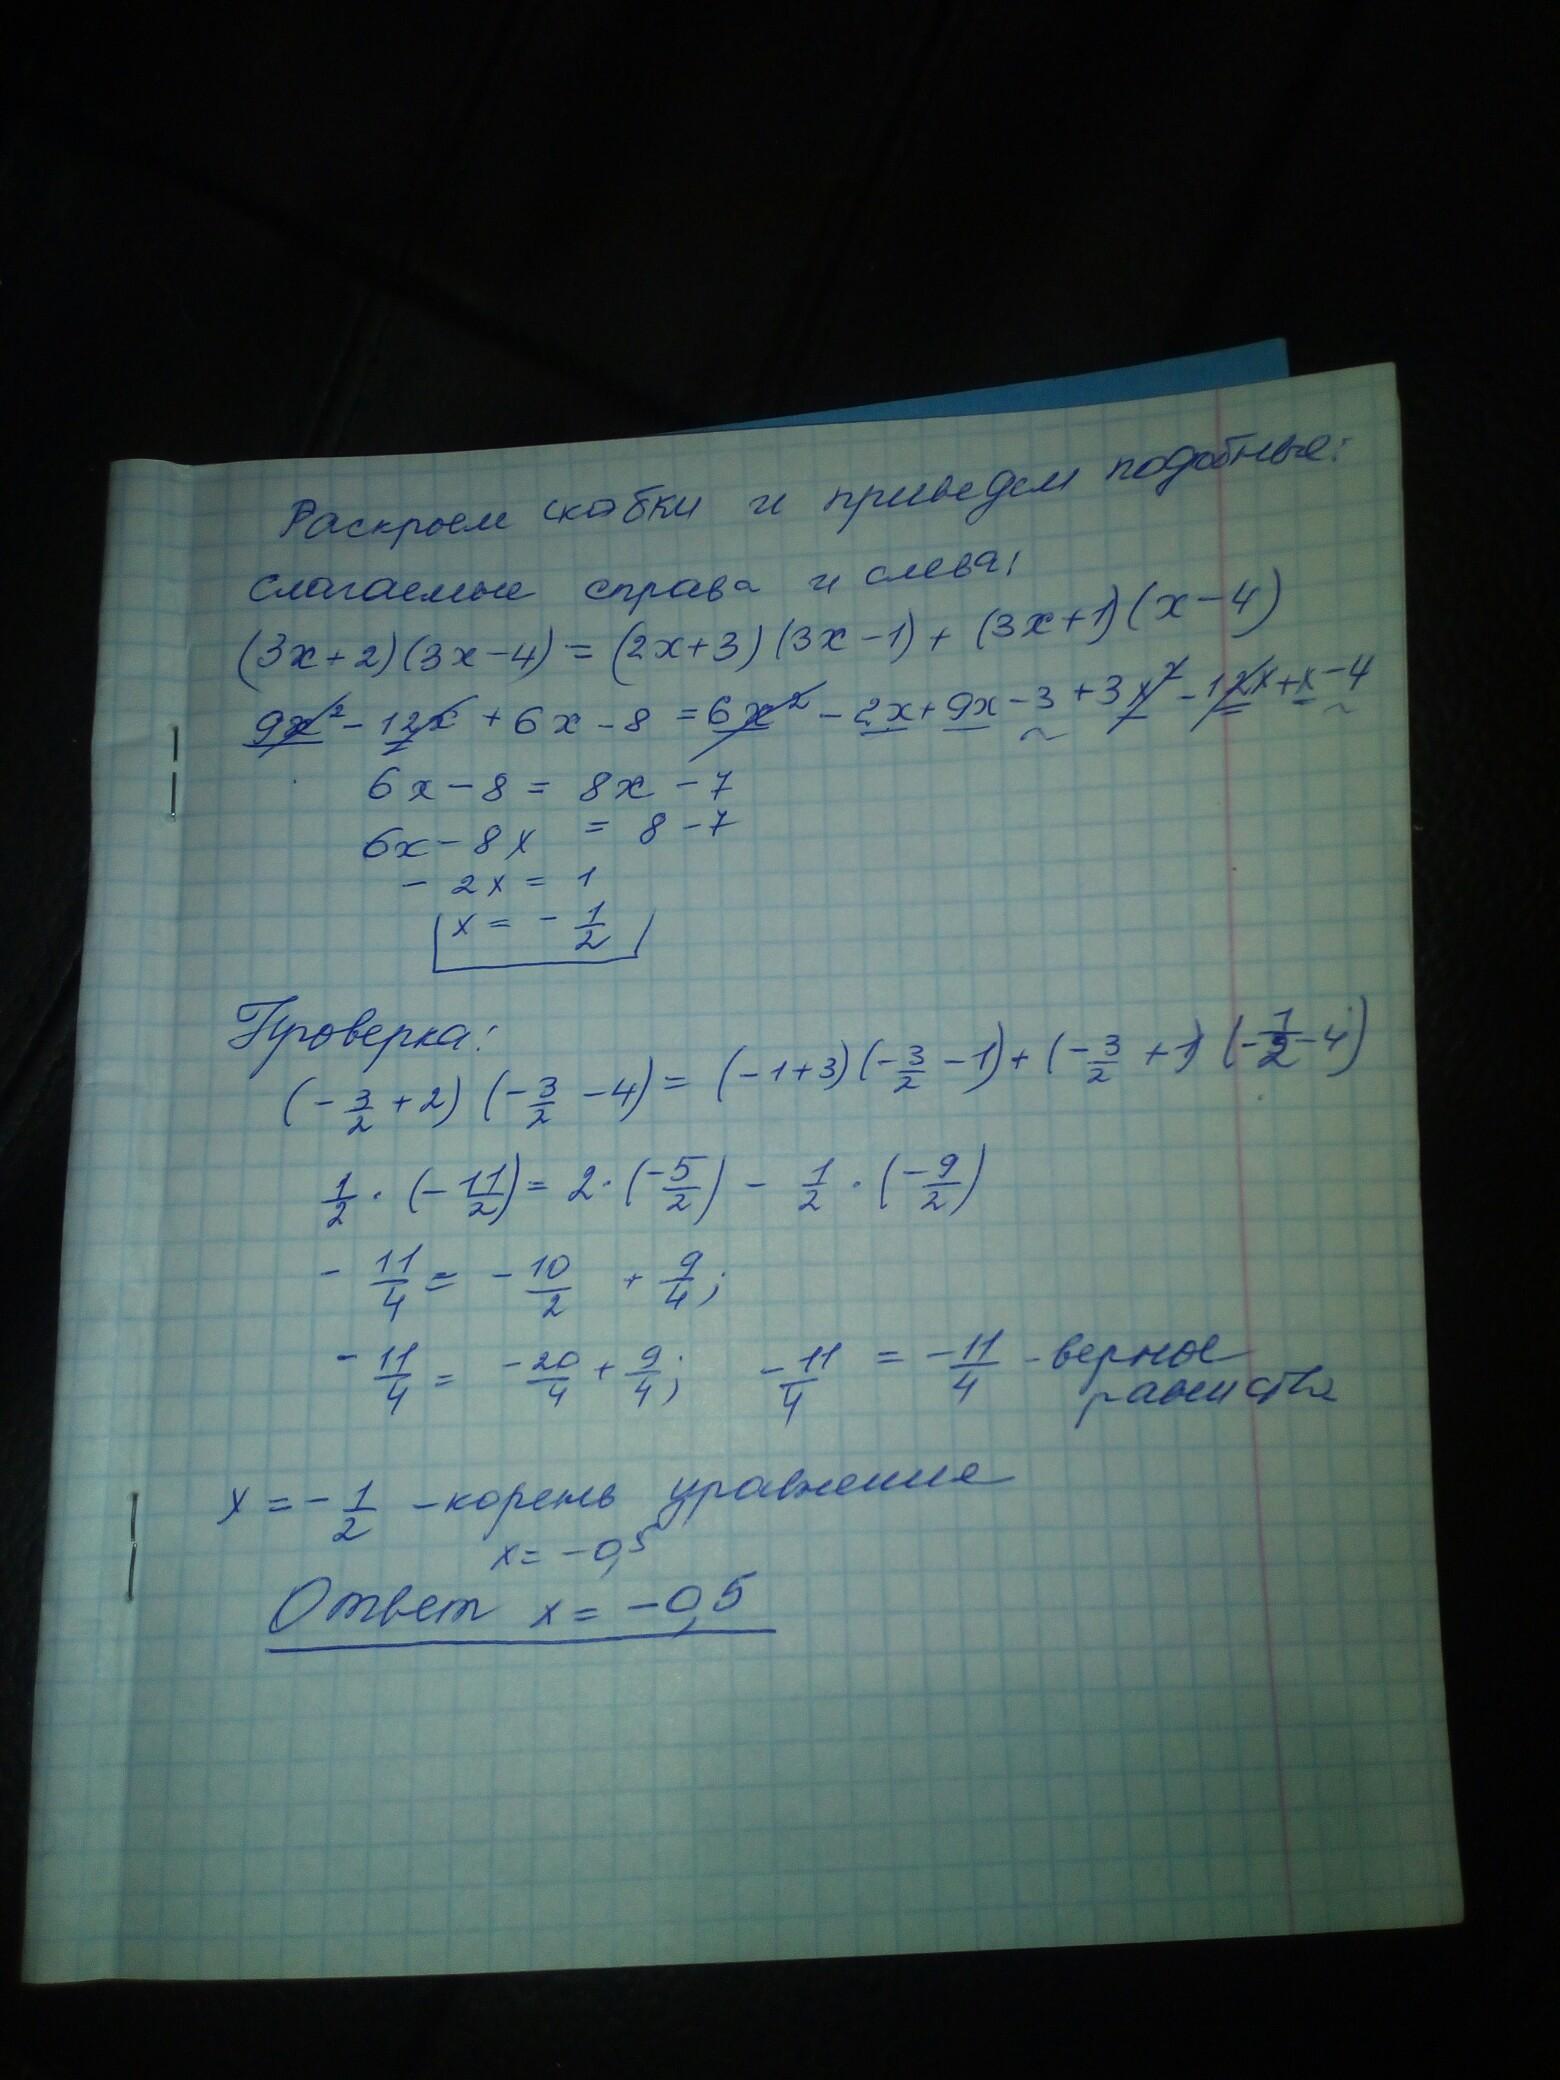 Раскроем скобки и приведем подобные:
слагаемые справа и слева:
(3x+2)(3x-4) = (2x+3)(3x-1) + (3x+1)(x-4)
9x² - 12x + 6x - 8 = 6x² - 2x + 9x - 3 + 3x² - 12x + x - 4
6x - 8 = 8x - 7
6x - 8x = 8 - 7
- 2x = 1
x = - 1/2
Проверка:
(-3/2 + 2) (-3/2 - 4) = (-1+3)(-3/2 - 1) + (-3/2 + 1) (-1/2 - 4)
1/2 · (-11/2) = 2 · (-5/2) - 1/2 · (-9/2)
- 11/4 = - 10/2 + 9/4;
- 11/4 = -20/4 + 9/4; -11/4 = -11/4 - верное
равенство
x = - 1/2 - корень уравнения
x = -0,5
Ответ x = -0,5